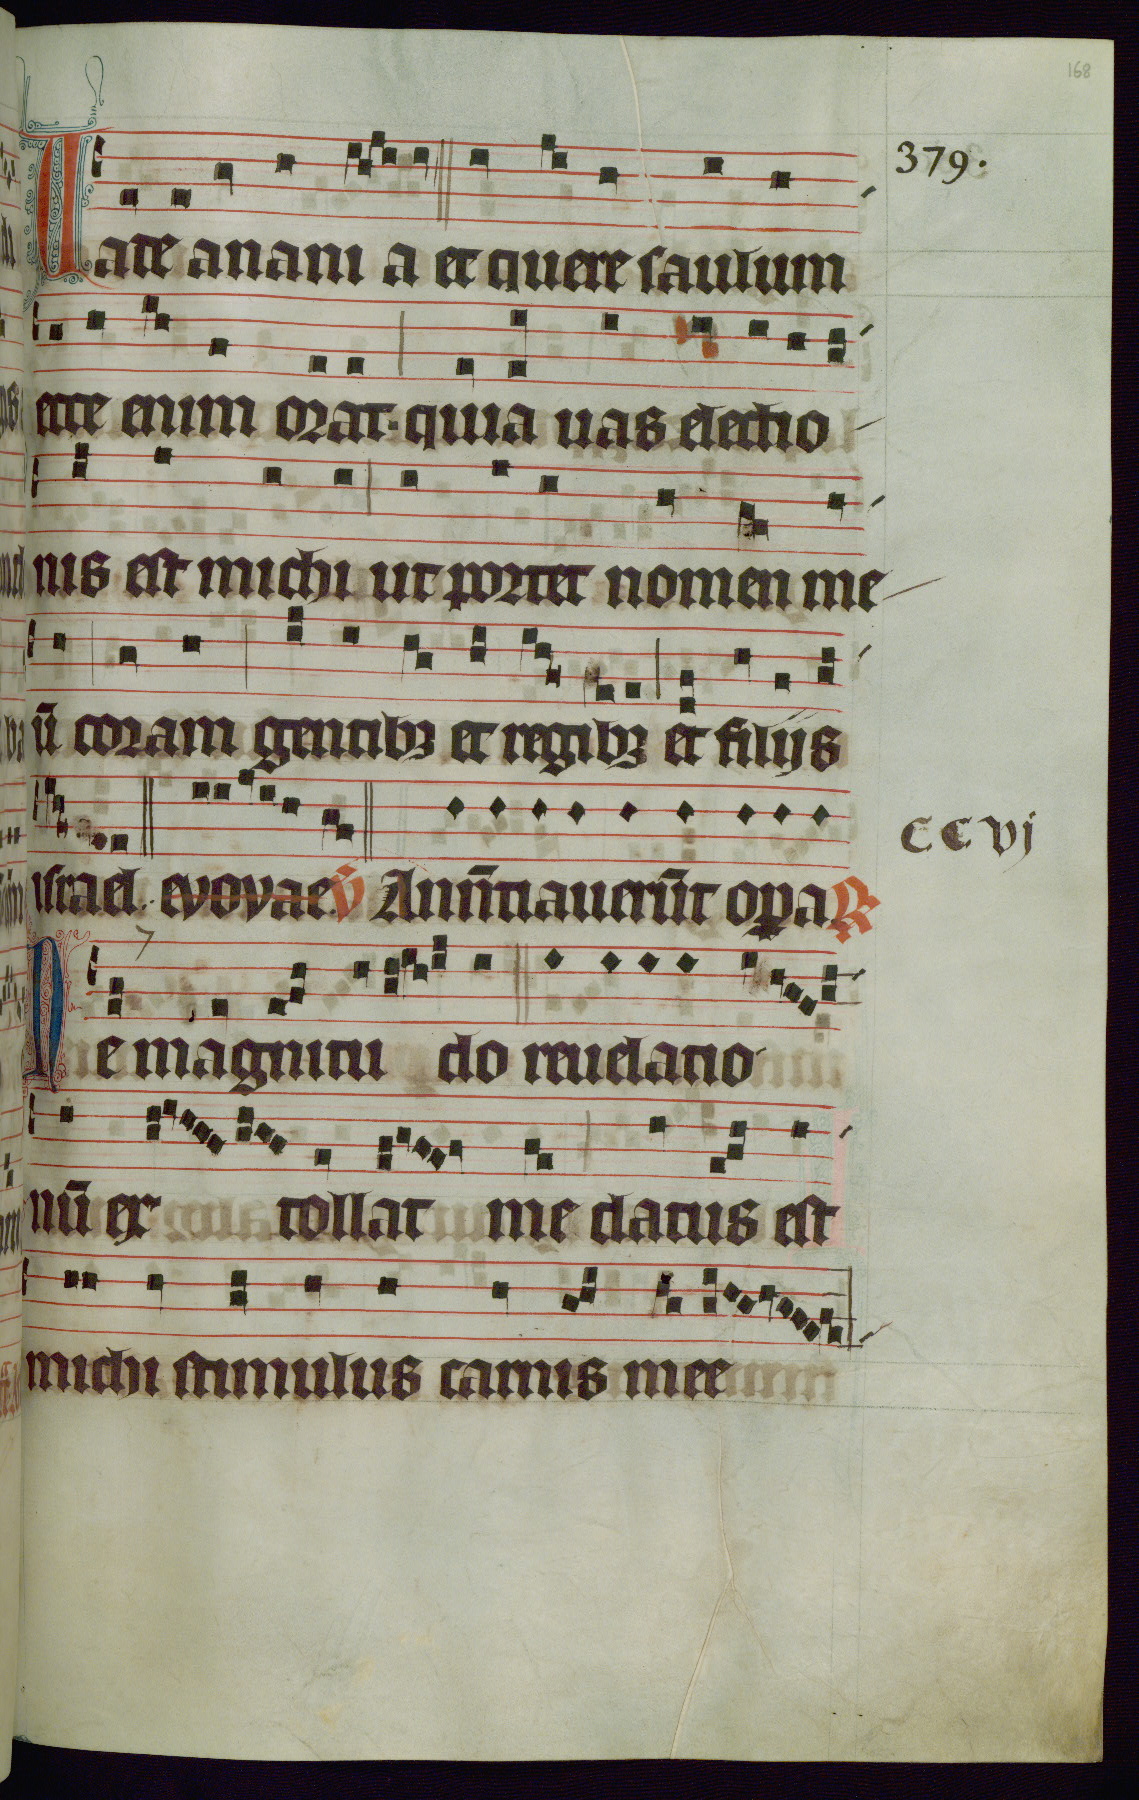 168
379.
Iate anani a et quere saulum
ecce enim orat. quia uas electio
nis est michi ut portet nomen me
ū coram gentibꝫ et regibꝫ et filijs
israel. evovae. V̄ Anūtiauerūt opa R
CCVj
Ne magnitu do reuelatio
nū ex tollat me datus est
michi stimulus carnis mee